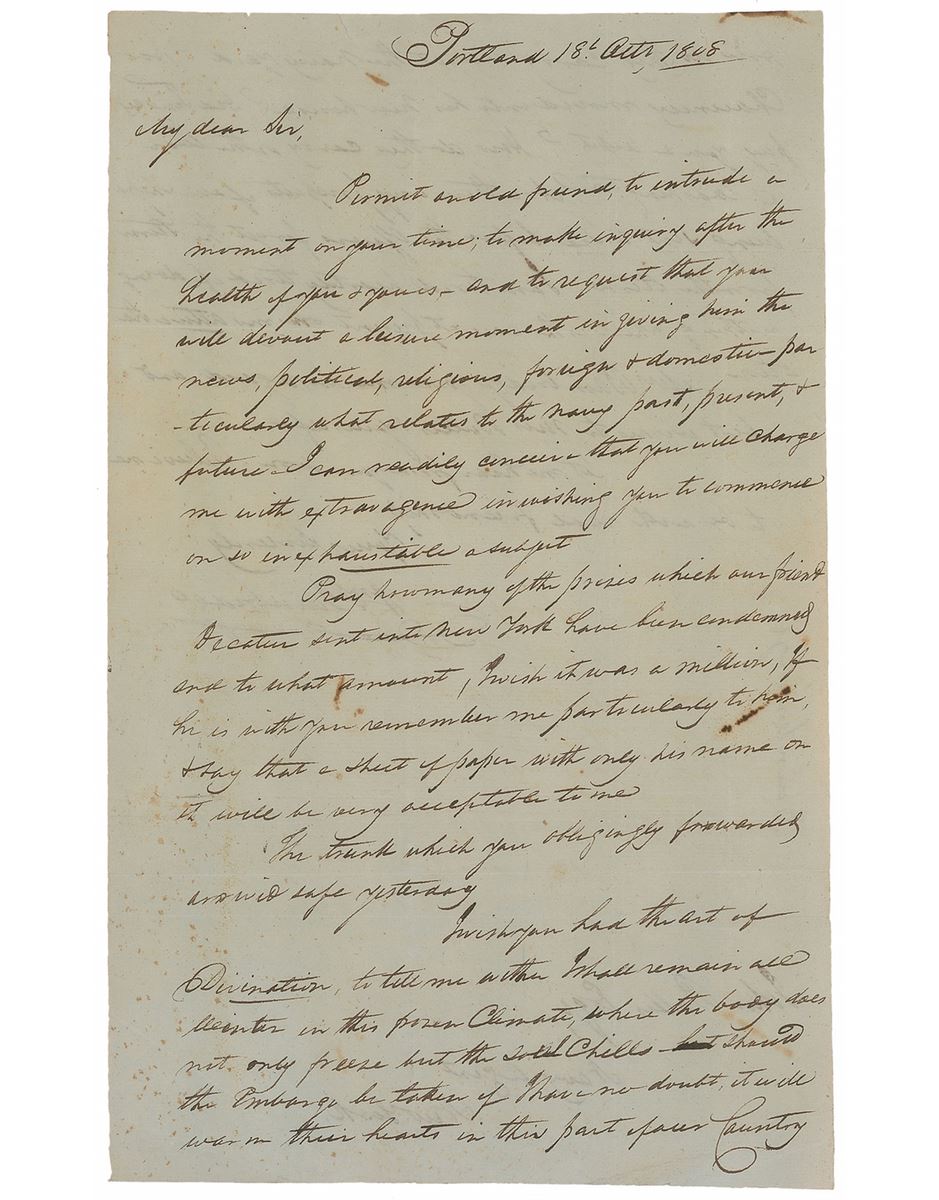 Portland 18t Octr, 1808
My dear Sir,
Permit an old friend, to intrude a
moment on your time; to make inquiry after the
health of you & yours, - and to request that you
will devout a leisure moment in giving him the
news, political, religious, foreign & domestic - par
-ticularly what relates to the navy past, present, &
future - I can readily conceive that you will charge
me with extravagence in wishing you to commence
on so inexhaustable a subject
Pray how many of the prizes which our friend
Decatur sent into New York have been condemned
and to what amount, I wish it was a million, If
he is with you remember me particularly to him,
& say that a sheet of paper with only his name on
it will be very acceptable to me
The trunk which you obligingly forwarded
arrived safe yesterday
I wish you had the art of
Divination, to tell me wither I shall remain all
Winter in this frozen Climate, where the body does
not only freeze but the soul Chills should
the Embargo be taken of I have no doubt, it will
warm their hearts in this part of our Country